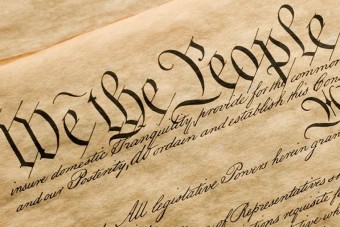 We the People
insure domestic Tranquility, provide for the common
and our Posterity, do ordain and establish this Con
All legislative Powers herein gran
of Representatives
requisite f